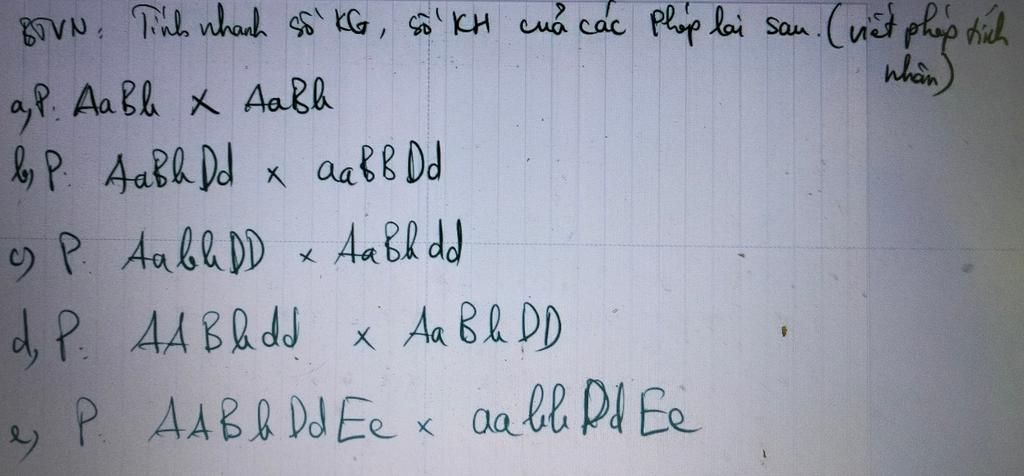 BTVN: Tính nhanh số KG, số KH của các phép lai sau. (viết phép tính nhân)
a, P. AaBb x AaBb
b, P. AaBbDd x aaBBDd
c, P. AabbDD x AaBbdd
d, P. AABbdd x AaBbDD
e, P. AABbDdEe x aabbDdEe